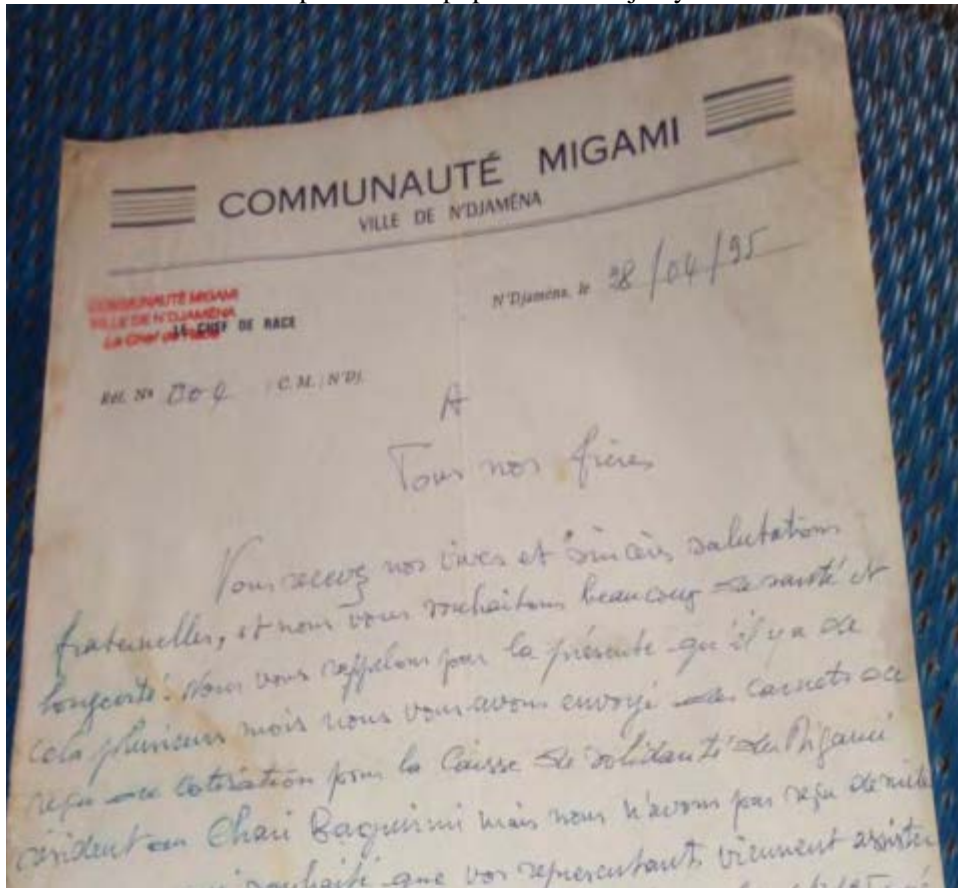 COMMUNAUTÉ MIGAMI
VILLE DE N'DJAMÉNA
N'Djaména, le 28/04/95
COMMUNAUTÉ MIGAMI
VILLE DE N'DJAMÉNA
Le Chef de Race
LE CHEF DE RACE
Réf. N° / C. M. / N'DJ.
A
Tous nos frères
Vous recevez nos vives et sincères salutations
fraternelles, et nous vous souhaitons beaucoup de santé et
longévité. Nous vous rappelons par la présente qu'il y a de
cela plusieurs mois nous vous avons envoyé des carnets de
reçu de cotisation pour la Caisse de solidarité des Migami
résident au Chari Baguirmi mais nous n'avons pas reçu de
souhaité que vos représentants viennent assister